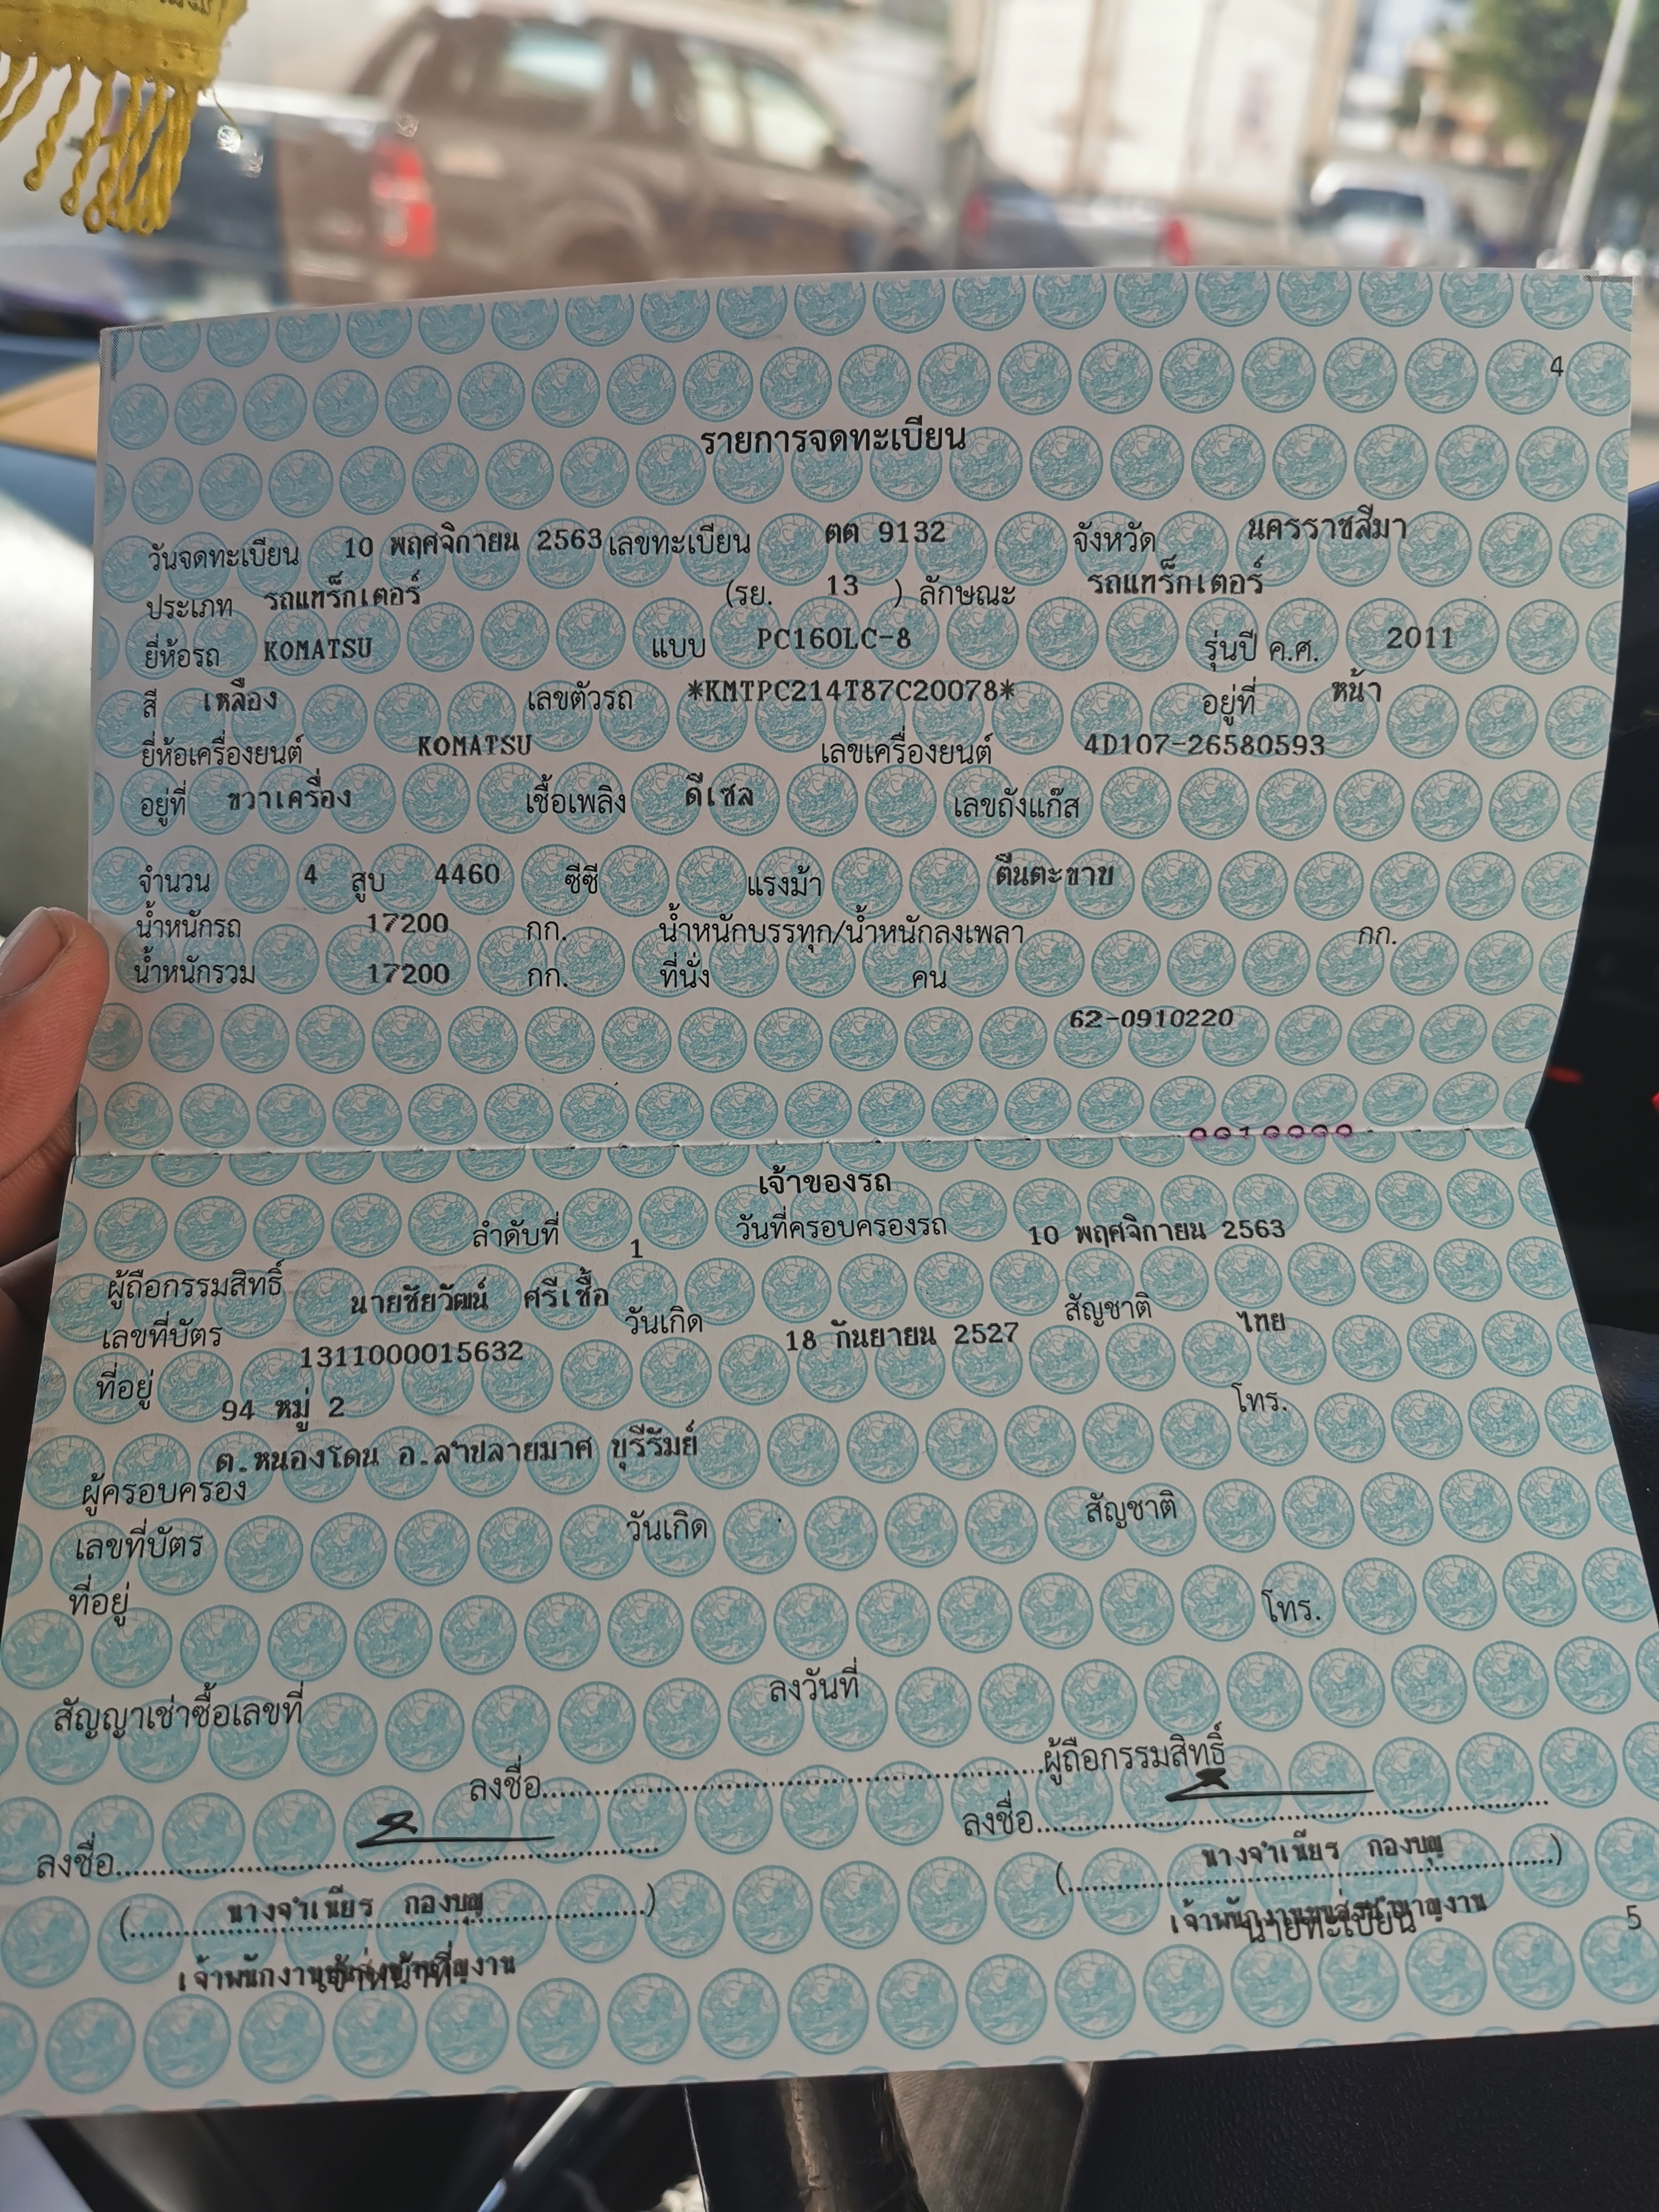 4
รายการจดทะเบียน
วันจดทะเบียน 10 พฤศจิกายน 2563 เลขทะเบียน ตต 9132 จังหวัด นครราชสีมา
ประเภท รถแทร็กเตอร์ (รย. 13 ) ลักษณะ รถแทร็กเตอร์
ยี่ห้อรถ KOMATSU แบบ PC160LC-8 รุ่นปี ค.ศ. 2011
สี เหลือง เลขตัวรถ *KMTPC214T87C20078* อยู่ที่ หน้า
ยี่ห้อเครื่องยนต์ KOMATSU เลขเครื่องยนต์ 4D107-26580593
อยู่ที่ ขวาเครื่อง เชื้อเพลิง ดีเซล เลขถังแก๊ส
จำนวน 4 สูบ 4460 ซีซี แรงม้า ตีนตะขาบ
น้ำหนักรถ 17200 กก. น้ำหนักบรรทุก/น้ำหนักลงเพลา กก.
น้ำหนักรวม 17200 กก. ที่นั่ง คน
62-0910220
เจ้าของรถ
ลำดับที่ 1 วันที่ครอบครองรถ 10 พฤศจิกายน 2563
ผู้ถือกรรมสิทธิ์ นายชัยวัฒน์ ศรีเชื้อ
เลขที่บัตร 1311000015632 วันเกิด 18 กันยายน 2527 สัญชาติ ไทย
ที่อยู่ 94 หมู่ 2 โทร.
ต.หนองโดน อ.ลำปลายมาศ บุรีรัมย์
ผู้ครอบครอง
เลขที่บัตร วันเกิด สัญชาติ
ที่อยู่ โทร.
สัญญาเช่าซื้อเลขที่ ลงวันที่
ลงชื่อ..........ผู้ถือกรรมสิทธิ์
ลงชื่อ.......... ลงชื่อ..........
(นางจำเนียร กองบุญ) (นางจำเนียร กองบุญ)
เจ้าพนักงานขนส่งชำนาญงาน เจ้าพนักงานขนส่งชำนาญงาน
เจ้าหน้าที่ นายทะเบียน
5